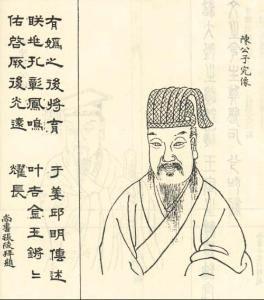 陳公子完像
有媯之後將育
于姜邱明傳述
朕兆孔彰鳳鳴
叶吉金玉鏘鏘
佑啓厥後光遠
耀長
尚書張陵拜題